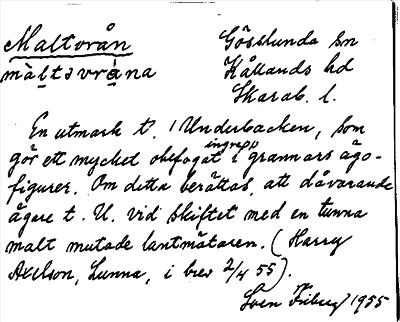 Maltvrån
Gösslunda sn
màltsvrá̱na
Kållands hd
Skarab. l.
En utmark t. Underbacken, som
gör ett mycket obefogat ingrepp i grannars ägo-
figurer. Om detta berättas, att dåvarande
ägare t. U. vid skiftet med en tunna
malt mutade lantmätaren. (Harry
Axelson, Lunna, i brev 2/4 55).
Sven Friberg 1955